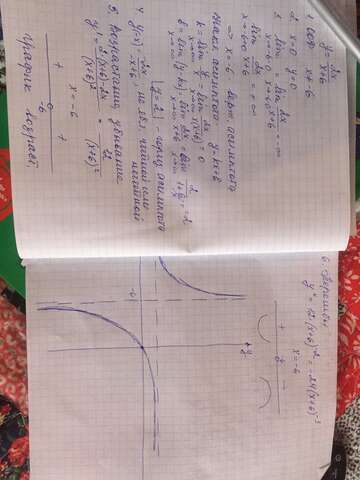 y = 2x / x+6
1. ООФ: x ≠ -6
2. x=0 y=0
3. lim x→-6-0 2x/x+6 = lim x→-6+0 2x/x+6 = -∞
lim x→-6-0 2x/x+6 = +∞
=> x=-6 - верт. асимптота
Накл. асимптота: y=kx+b
k = lim x→∞ y/x = lim x→∞ 2x/x(x+6) = 0
b = lim x→∞ (y-kx) = lim x→∞ 2x/x+6 = lim x→∞ 2/1+6/x = 2
y=2 - гориз. асимптота
4. y(-x) = -2x/-x+6, не явл. чётной или нечётной
5. Возрастание, убывание
y' = 2(x+6)-2x/(x+6)² = 12/(x+6)²
x=-6
+ +
-6
График возраст.
6.
y'' = (12·(x+6)⁻²)' = -24(x+6)⁻³
x=-6
+ -
-6
-6
y